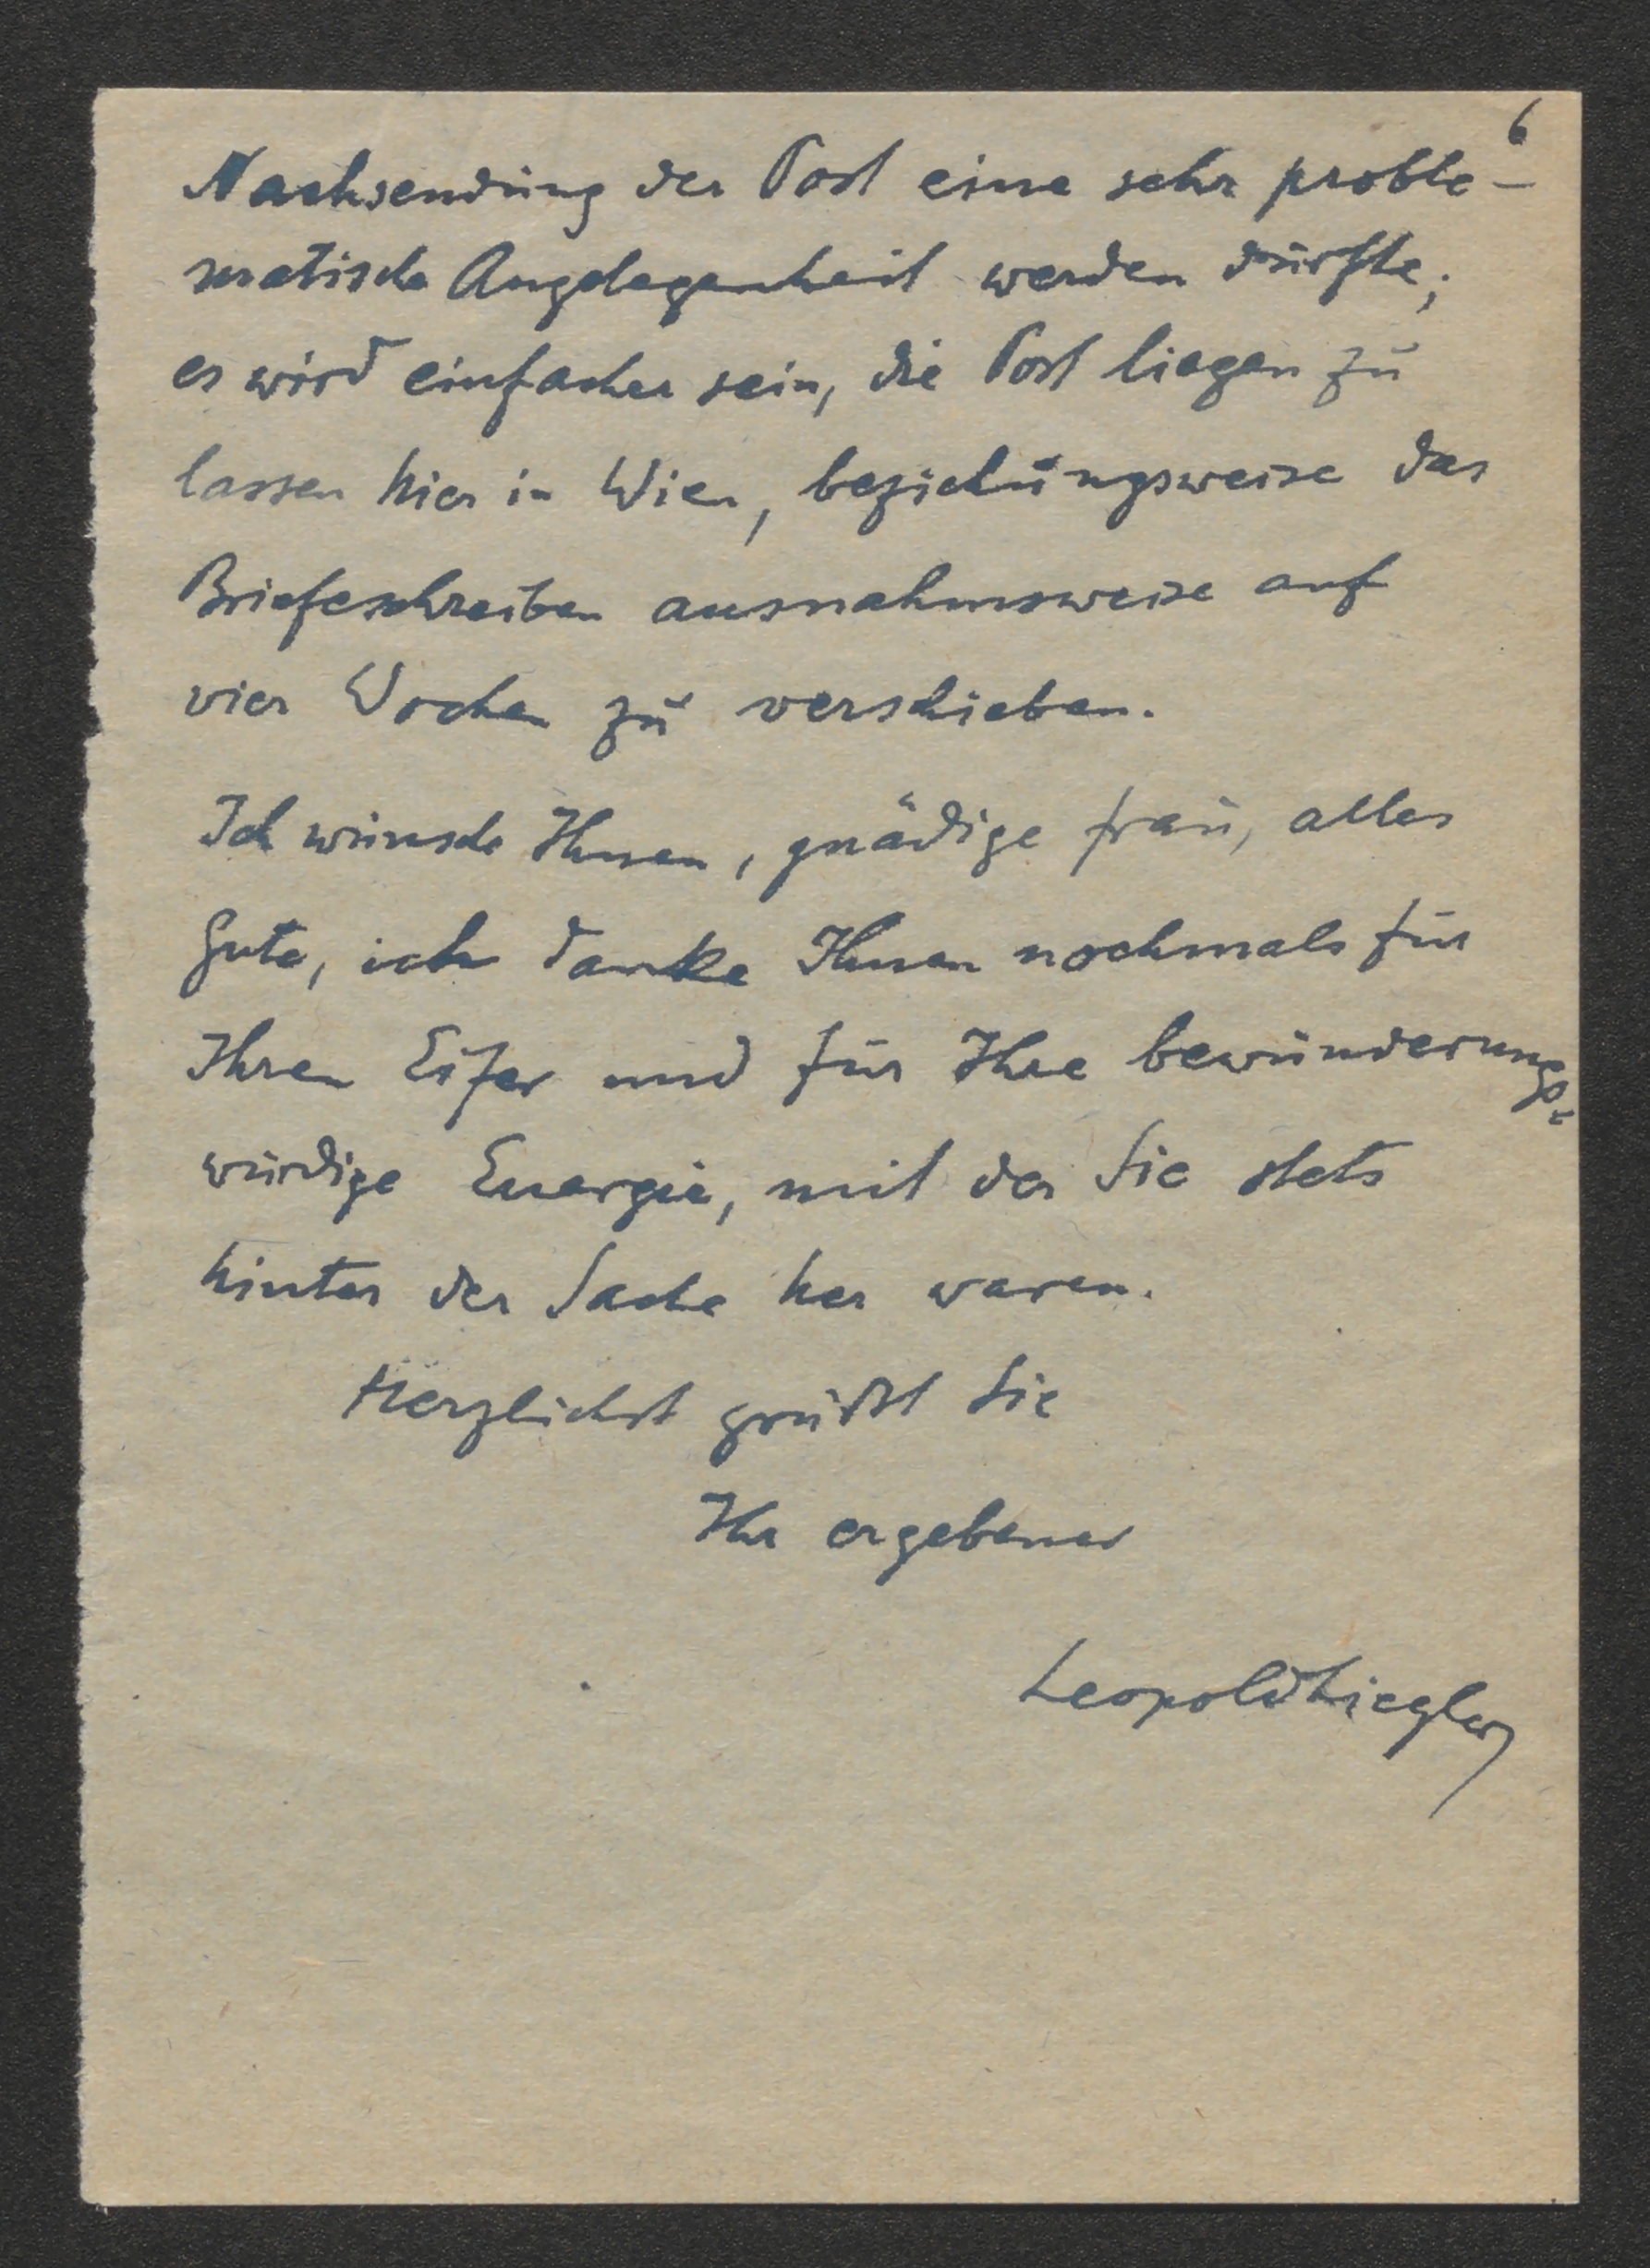 6
Nachsendung der Post eine sehr proble-
matische Angelegenheit werden dürfte;
es wird einfacher sein, die Post liegen zu
lassen hier in Wien, beziehungsweise das
Briefeschreiben ausnahmsweise auf
vier Wochen zu verschieben.
Ich wünsche Ihnen, gnädige Frau, alles
Gute, ich danke Ihnen nochmals für
Ihren Eifer und für Ihre bewunderungs-
würdige Energie, mit der Sie stets
hinter der Sache her waren.
Herzlichst grüßt Sie
Ihr ergebener
Leopold Liegler